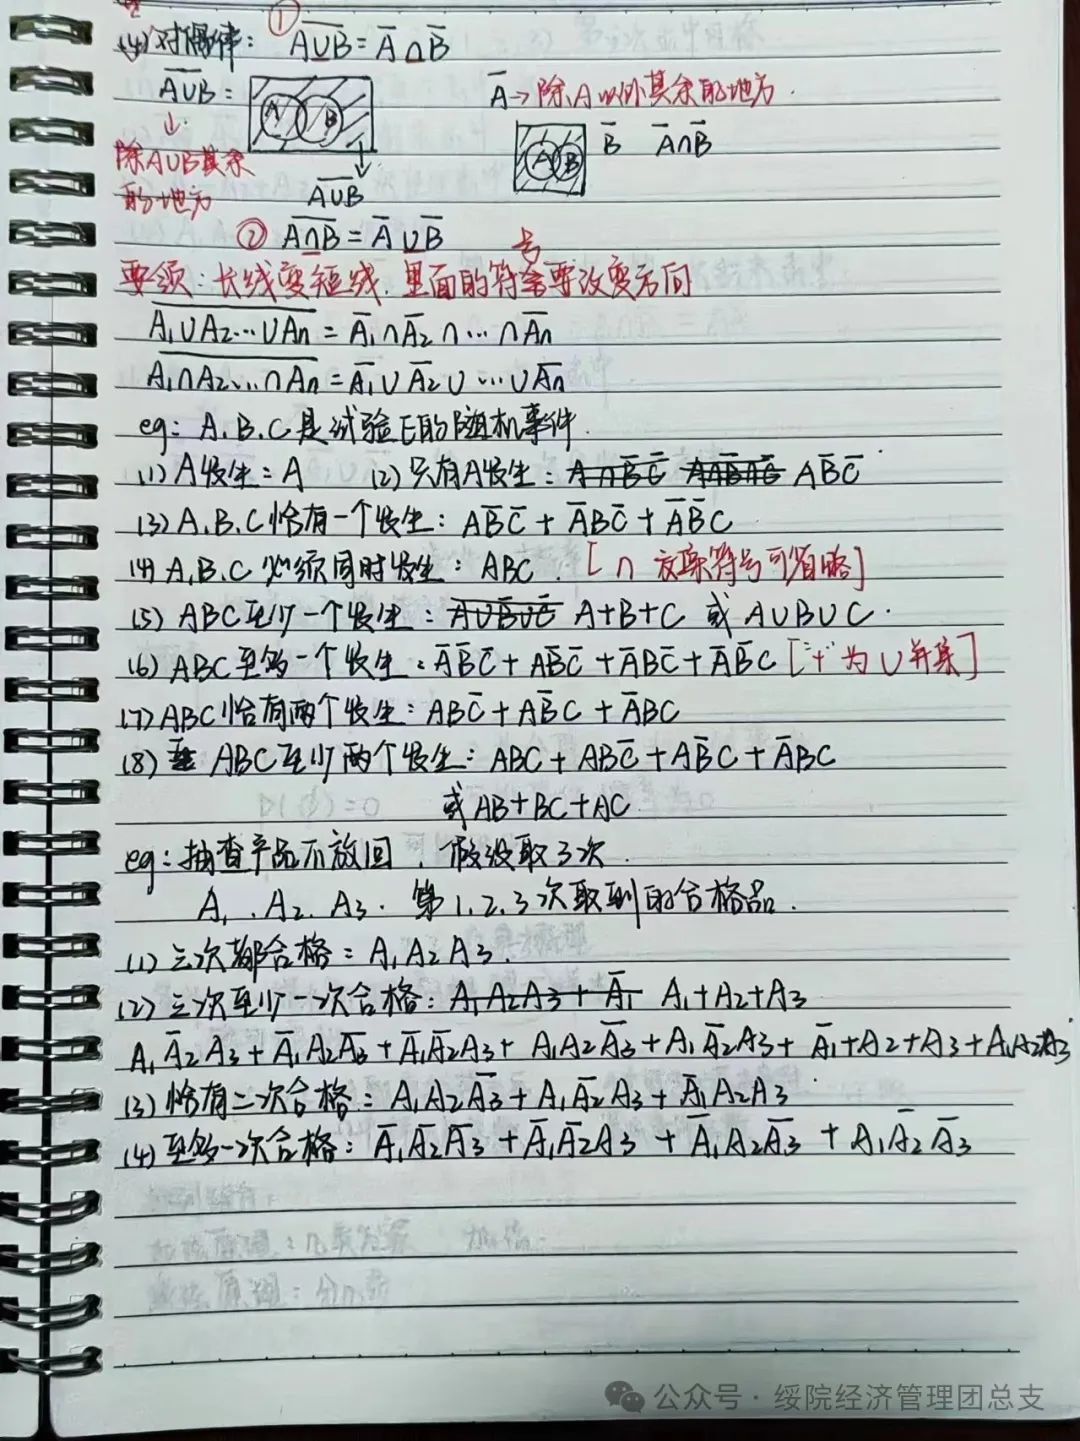 (4) 对偶律： ① A̅∪̅B̅ = A̅ ∩ B̅
A̅∪̅B̅ =
A B
A̅ → 除A以外其余的地方.
A B
B̅ A̅∩B̅
↓
除A∪B其余
的地方
A̅∪̅B̅
② A̅∩̅B̅ = A̅ ∪ B̅
号
要领：长线变短线，里面的符号要改变方向
A̅₁̅∪̅A̅₂̅…̅∪̅A̅n̅ = A̅₁∩A̅₂∩…∩A̅n
A̅₁̅∩̅A̅₂̅…̅∩̅A̅n̅ = A̅₁∪A̅₂∪…∪A̅n
eg：A.B.C是试验E的随机事件.
(1) A发生：A (2) 只有A发生： AB̅C̅
(3) A.B.C恰有一个发生：AB̅C̅ + A̅BC̅ + A̅B̅C
(4) A.B.C必须同时发生：ABC. [∩ 交集符号可省略]
(5) ABC至少一个发生： A+B+C 或 A∪B∪C.
(6) ABC至多一个发生：A̅B̅C̅ + AB̅C̅ + A̅BC̅ + A̅B̅C ["+"为∪并集]
(7) ABC恰有两个发生：ABC̅ + AB̅C + A̅BC
(8) ABC至少两个发生：ABC + ABC̅ + AB̅C + A̅BC
或 AB+BC+AC
eg：抽查产品不放回，假设取3次.
A₁、A₂、A₃. 第1.2.3次取到的合格品.
(1) 三次都合格：A₁A₂A₃.
(2) 三次至少一次合格： A₁+A₂+A₃
A₁A̅₂A₃ + A̅₁A₂A̅₃ + A̅₁A̅₂A₃ + A₁A₂A̅₃ + A₁A̅₂A₃ + A̅₁+A₂+A₃+A₁A₂A₃
(3) 恰有二次合格：A₁A₂A̅₃ + A₁A̅₂A₃ + A̅₁A₂A₃
(4) 至多一次合格：A̅₁A̅₂A̅₃ + A̅₁A̅₂A₃ + A̅₁A₂A̅₃ + A₁A̅₂A̅₃
公众号·绥院经济管理团总支